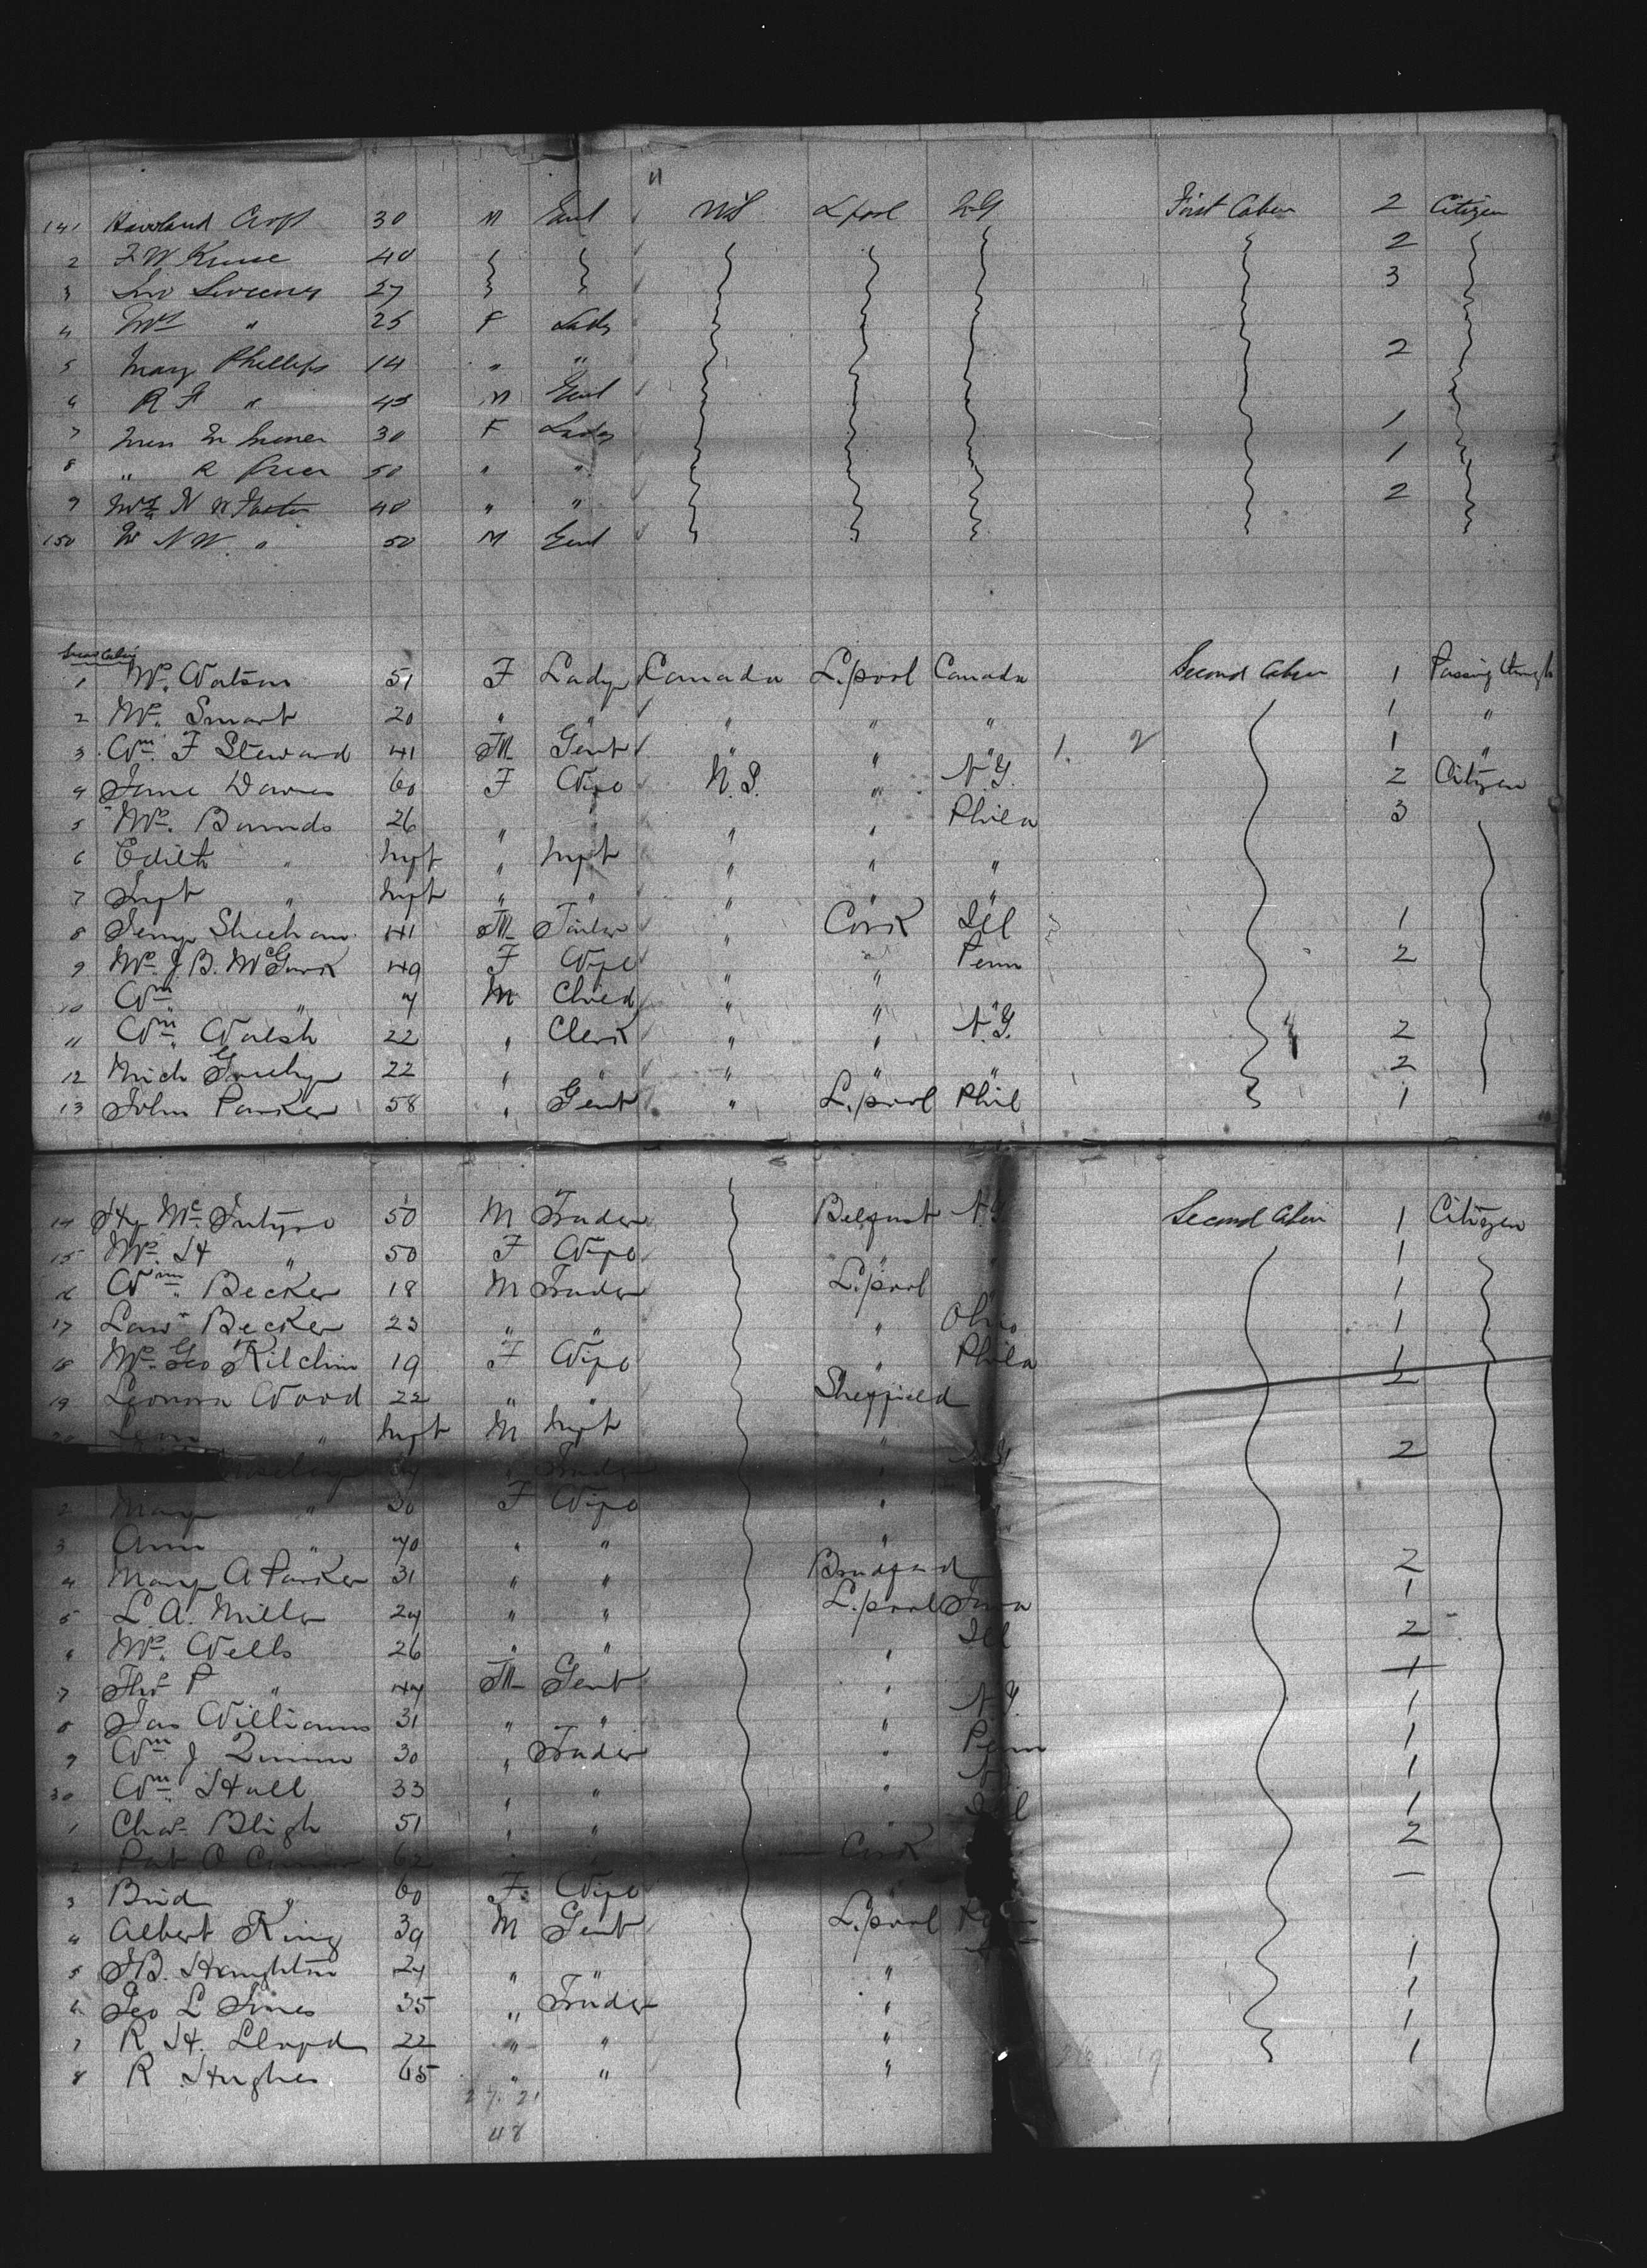 141 Haviland Croft 30 M Gent U S L/pool N Y First Cabin 2 Citizen
2 F W Kruse 40 2
3 Jno Sweeney 27 3
4 Mrs " 25 F Lady
5 Mary Phillips 14 " " 2
6 R F " 45 M Gent
7 Miss M 30 F Lady 1
8 " R Greer 50 " " 1
9 Mrs N W Foster 48 " " 2
150 Mr N W " 50 M Gent
Second Cabin
1 Mrs. Watson 51 F Lady Canada L.pool Canada Second Cabin 1 Passing through
2 Mrs. Smart 20 " " " " " 1 "
3 Wm. F Steward 41 M Gent " " " 1. 2 1 "
4 Jane Davies 60 F Wife U.S. " N.Y. 2 Citizen
5 Mrs. Bounds 26 " " " " Phila 3
6 Edith " Inft " Inft " " "
7 Inft " Inft " " " " "
8 Sheehan 41 M Tailor " Cork Ill 1
9 Mrs. J. B. McGurk 49 F Wife " " Penn 2
10 Wm. " 7 M Child " " "
11 Wm. Walsh 22 " Clerk " " N.Y. 2
12 Mich 22 " " " " " 2
13 John Parker 58 " Gent " L.pool Phil 1
14 Hy McIntyre 50 M Trader Belfast N.Y Second Cabin 1 Citizen
15 Mrs. H " 50 F Wife " " 1
16 Wm. Becker 18 M Trader L.pool " 1
17 Becker 23 " " " Ohio 1
18 Mrs. Geo Kitchin 19 F Wife " Phila 1
19 Leonora Wood 22 " " Sheffield 2
20 " Inft M Inft "
" Trader " 2
2 Mary " 30 F Wife "
3 Ann " 70 " " "
4 Mary A Parker 31 " " Bradford 2
5 L. A. Miller 24 " " L.pool Iowa 1
6 Mrs. Wells 26 " " " Ill 2
7 Thos P " 47 M Gent " 1
8 Jas Williams 31 " " " N.Y. 1
9 Wm. J Quinn 30 " Trader " Penn 1
30 Wm. Hall 33 " " " 1
1 Chas Bligh 51 " " " 1
2 Pat O Connor 62 " " Cork 2
3 Brid " 60 F Wife " —
4 Albert King 39 M Gent L.pool
5 J B. Haughton 24 " " " 1
6 Geo L Jones 35 " Trader " 1
7 R. H. Lloyd 22 " " " 1
8 R Hughes 65 " " " 1
27. 21
48